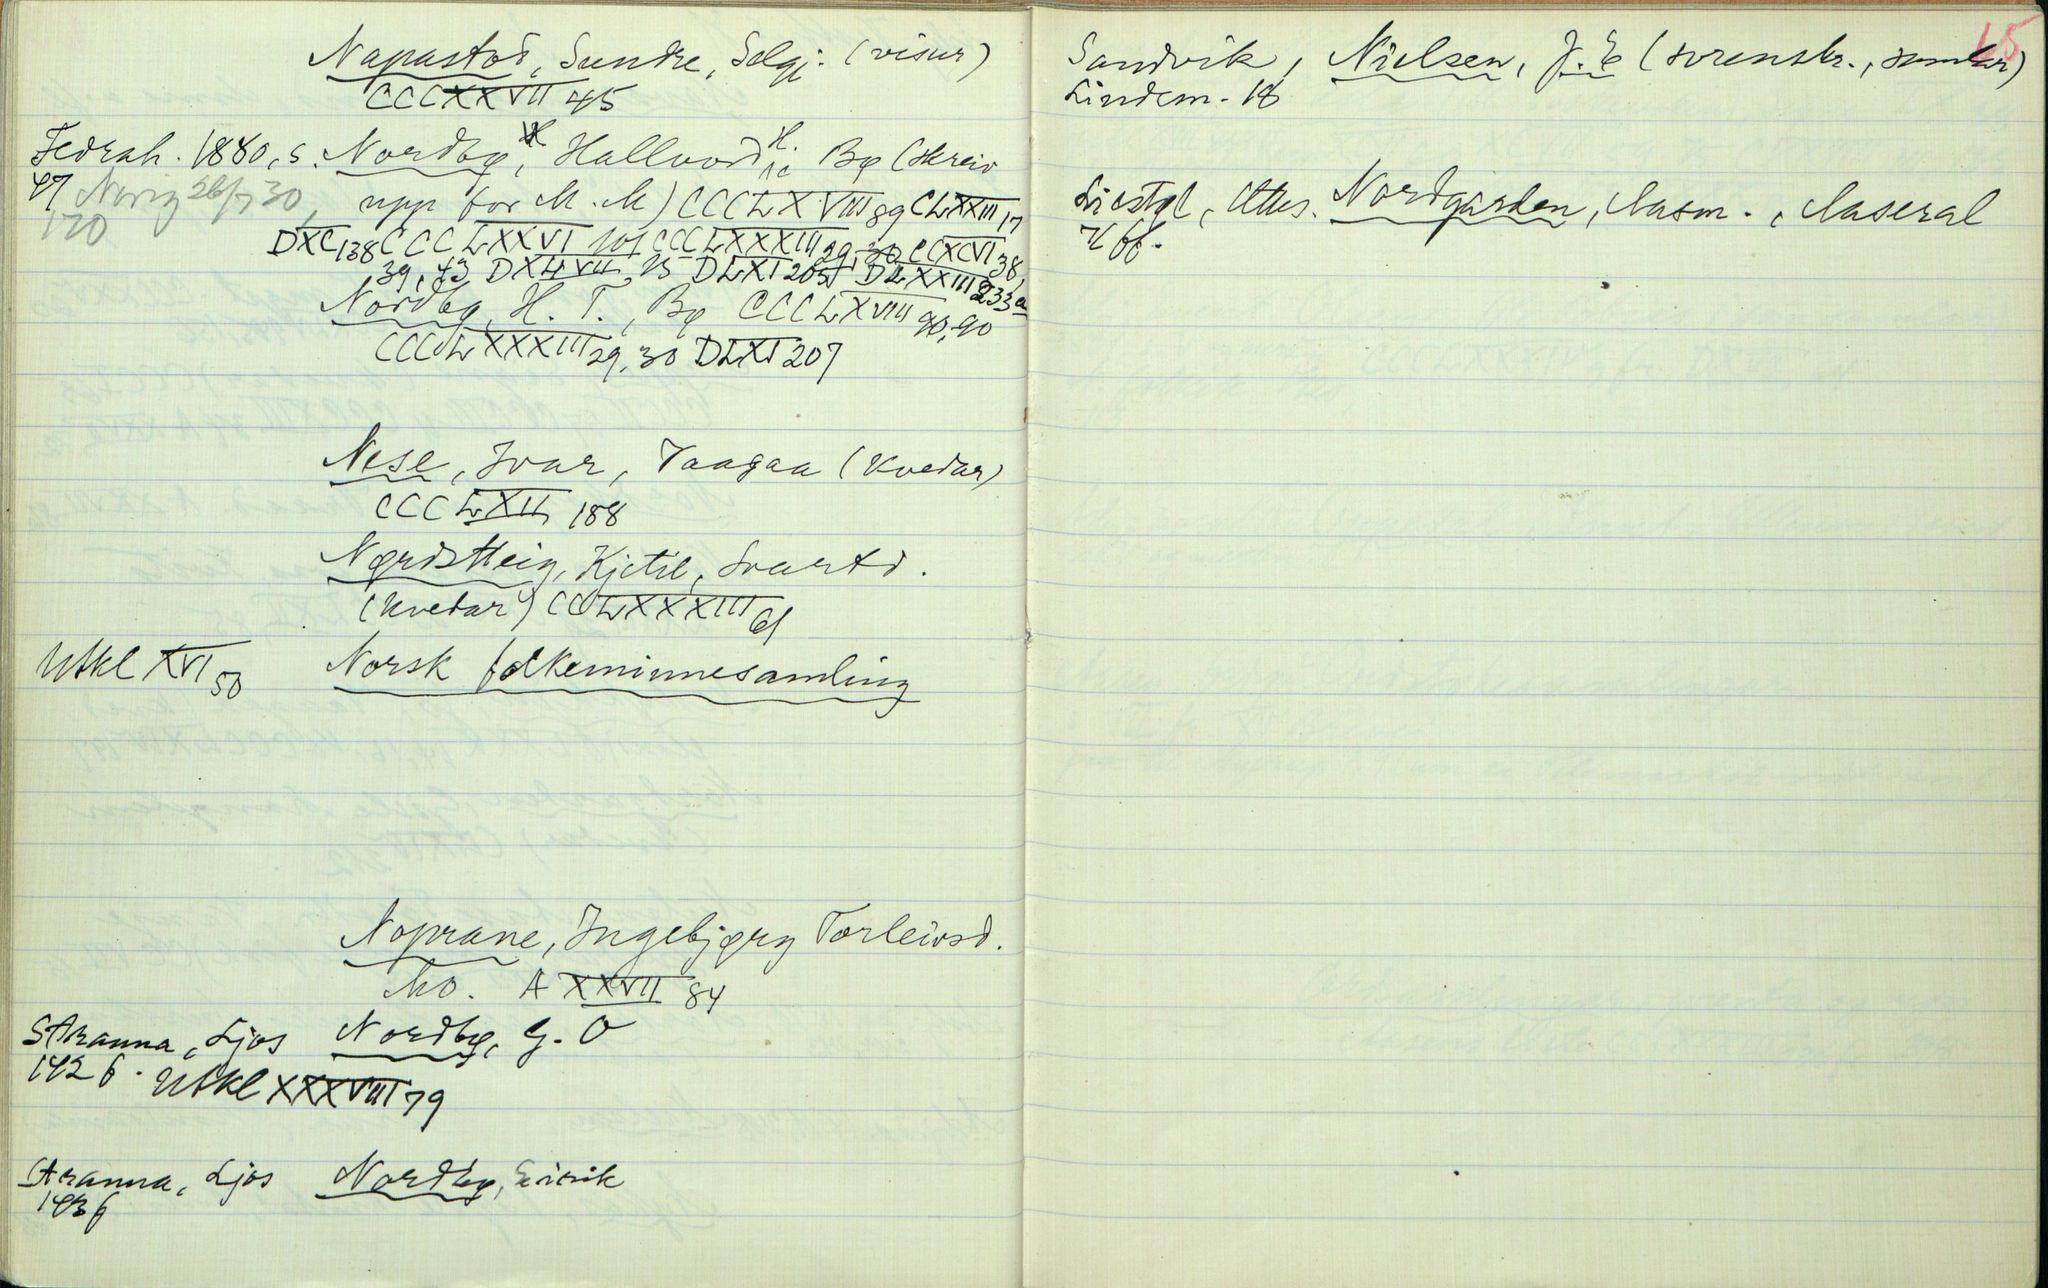 Napastod, Sundre, Selgj. (visur)
CCCXXVII 45
Fedrah. 1880, s. Nordbø, Hallvord H. Bø (skreiv
47 Norig 26/7 30, upp for M. M) CCCLXVIII 89 CLXXIII 17
120
DXC 138 CCCLXXVI 101 CCCLXXXIII 29, 30 CCXCVI 38,
39, 43 DXLVII 25 DLXI 205 DLXXIII 233a
Nordbø, H. T., Bø CCCLXVIII 90, 90
CCCLXXXIII 29, 30 DLXI 207
Nese, Ivar, Vaagaa (kvedar)
CCCLXII 188
Nørdstteig, Kjetil, Svartd.
(kvedar) CCLXXXIII 61
Utkl XVI 50 Norsk folkeminnesamling
Noprane, Ingebjørg Torleivsd.
Mo. A XXVII 84
Stranna, Ljos Nordbø, G. O
142 f. Utkl XXXVIII 79
Stranna, Ljos Nordbø, Eirik
143 f
15
Sandvik, Nielsen, J. E (sorenskr., samlar)
Lindem. 18
Liestøl, Utts. Nordgarden, Aasm., Aaseral
4 ff.